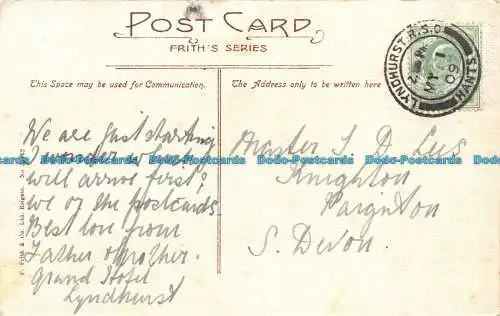 POST CARD
FRITH'S SERIES
This Space may be used for Communication.
The Address only to be written here
LYNDHURST R.S.O
MY 1
09
HANTS
We are just starting
I wonder which
will arrive first?
we or the postcards.
Best love from
Father & Mother.
Grand Hotel
Lyndhurst
Master S D
Knighton
Paignton
S. Devon.
F. Frith & Co. Ltd. Reigate. No
Bobs-Postcards Bobs-Postcards Bobs-Postcards Bobs-Postcards